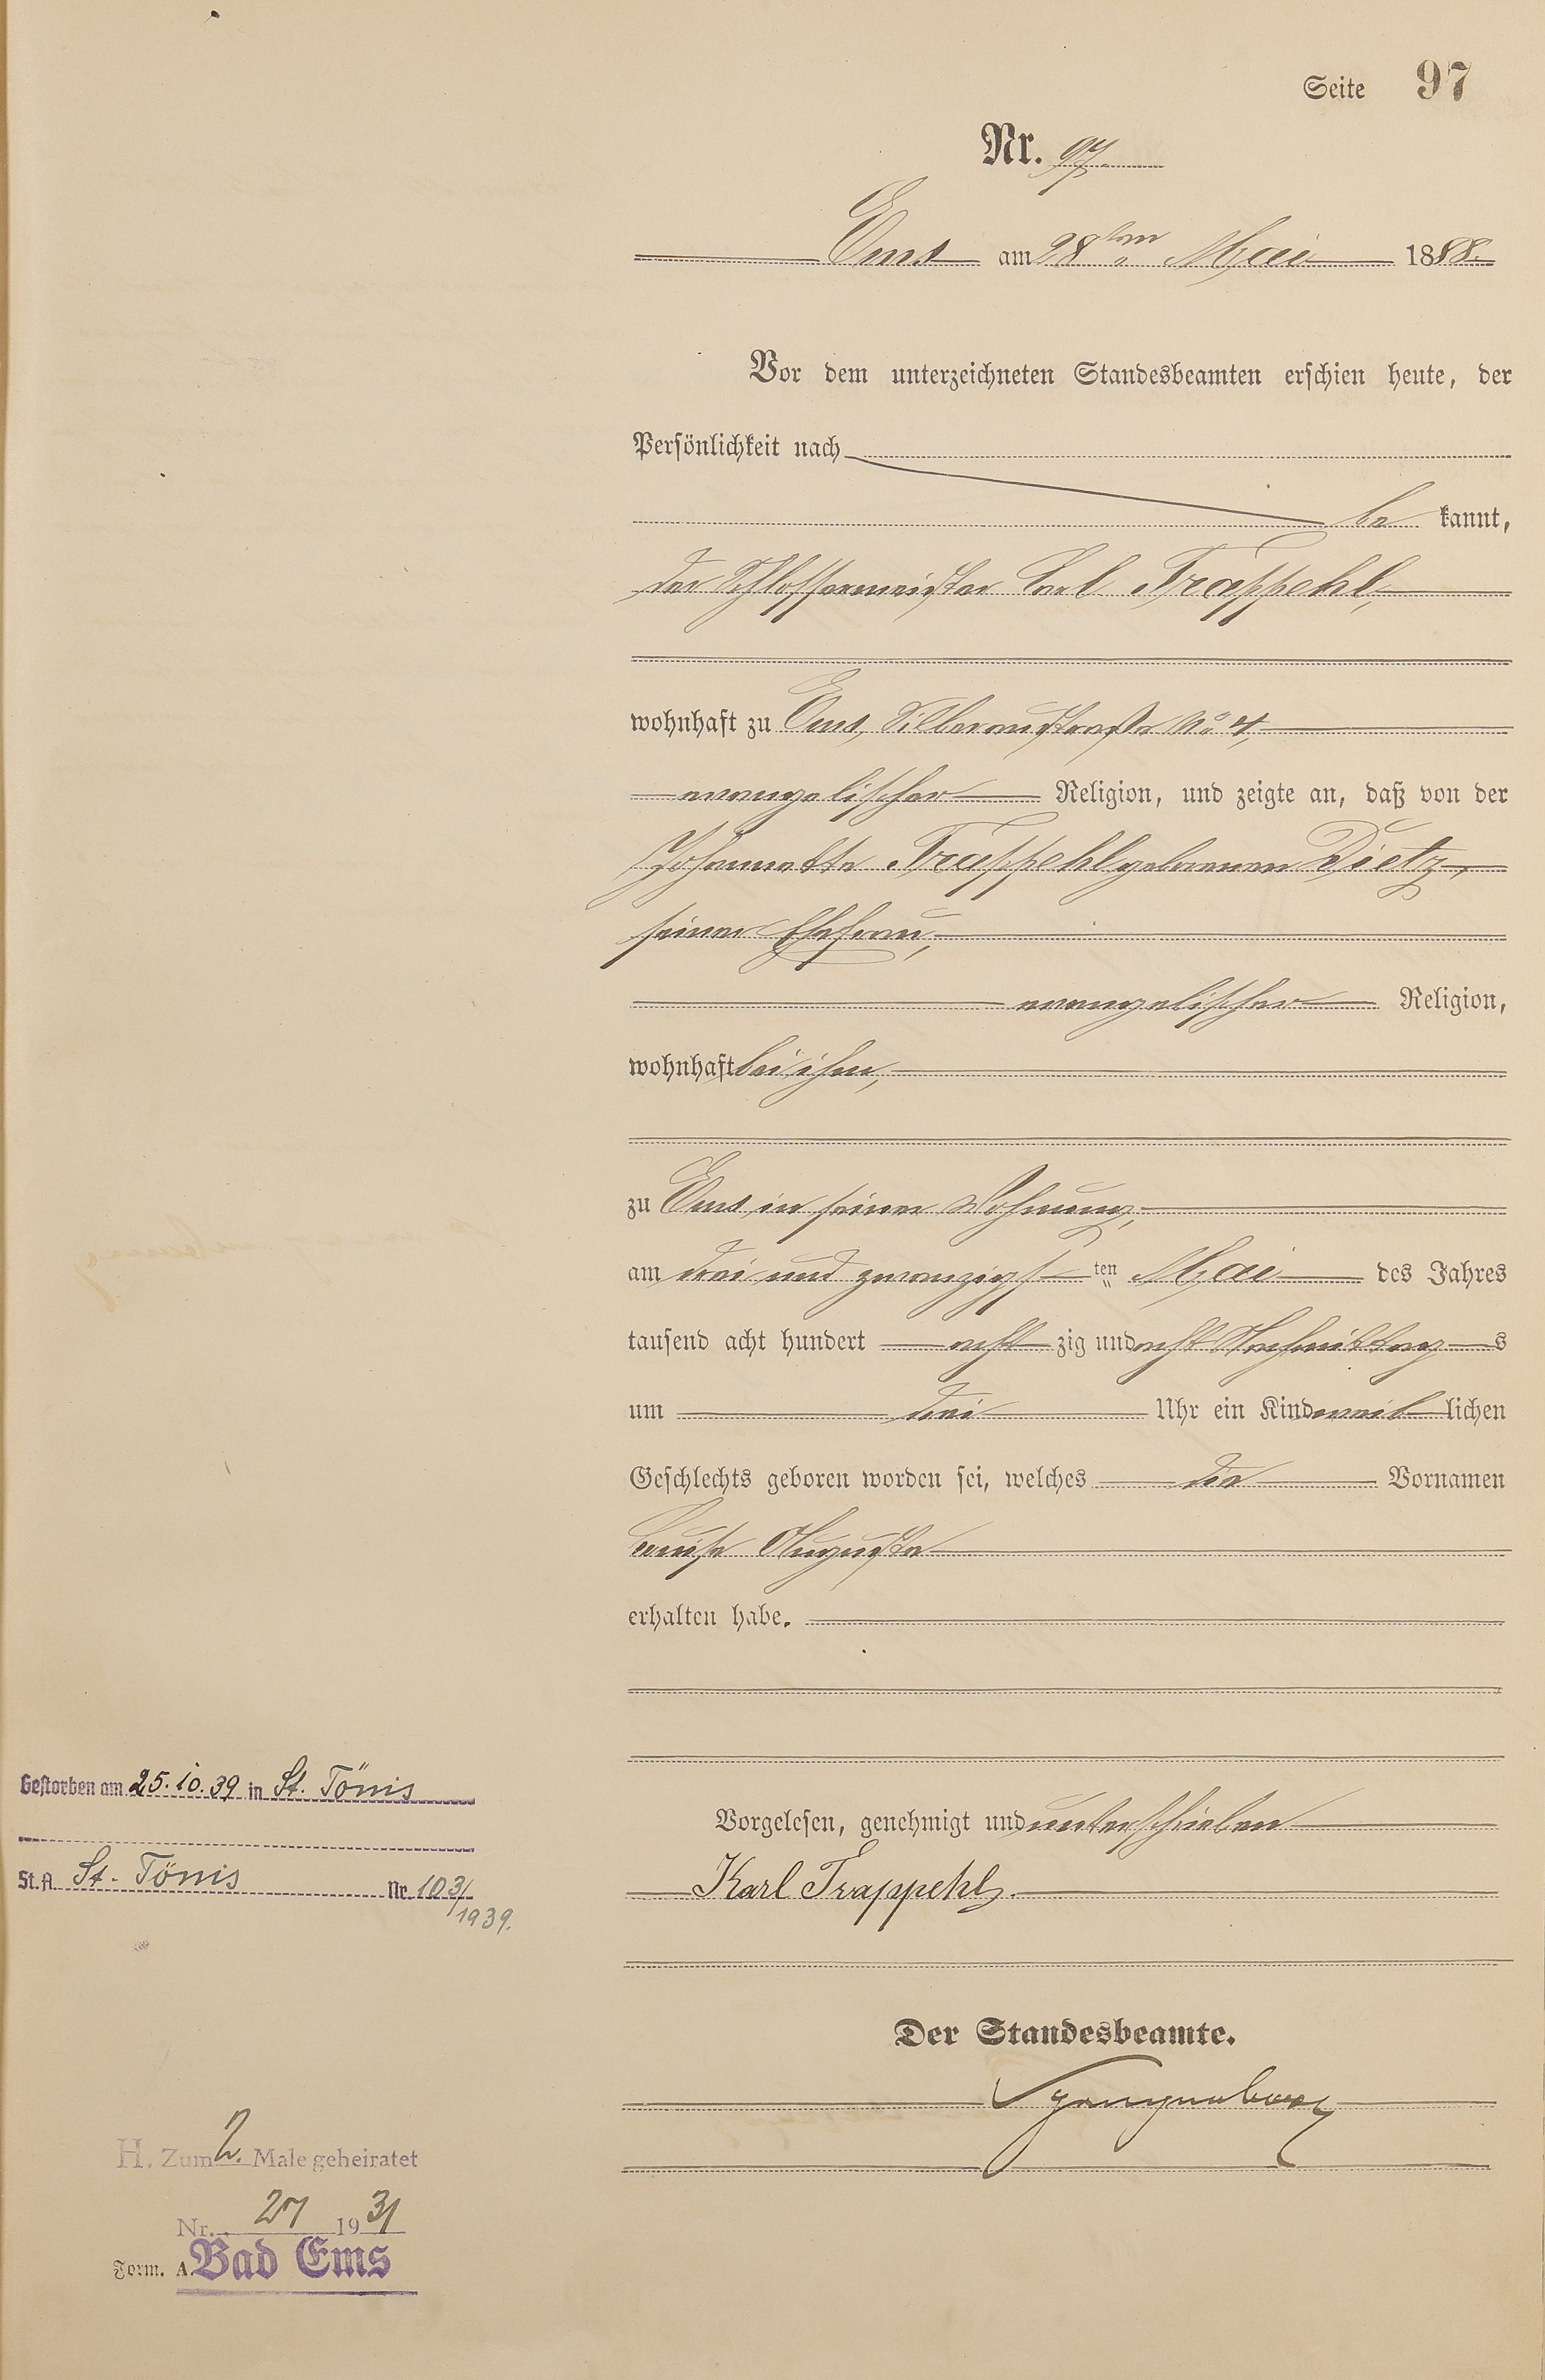 Seite 97
Nr. 97.
Ems am 28ten Mai 1888.
Vor dem unterzeichneten Standesbeamten erschien heute, der
Persönlichkeit nach
be kannt,
der Schlossermeister Carl Trappehl,
wohnhaft zu Ems, Silberaustraße No 4,
evangelischer Religion, und zeigte an, daß von der
Johannette Trappehl geborenen Dietz,
seiner Ehefrau,
evangelischer Religion,
wohnhaft bei ihm,
zu Ems in seiner Wohnung,
am drei und zwanzigsten Mai des Jahres
tausend acht hundert acht zig und acht Nachmittags
um drei Uhr ein Kind weiblichen
Geschlechts geboren worden sei, welches die Vornamen
Louise Auguste
erhalten habe.
Vorgelesen, genehmigt und unterschrieben
Karl Trappehl.
Der Standesbeamte.
Gestorben am 25.10.39 in St. Tönis
St.A. St. Tönis Nr. 103/
1939.
H. Zum 2. Male geheiratet
Nr. 27 1931
Form. A. Bad Ems